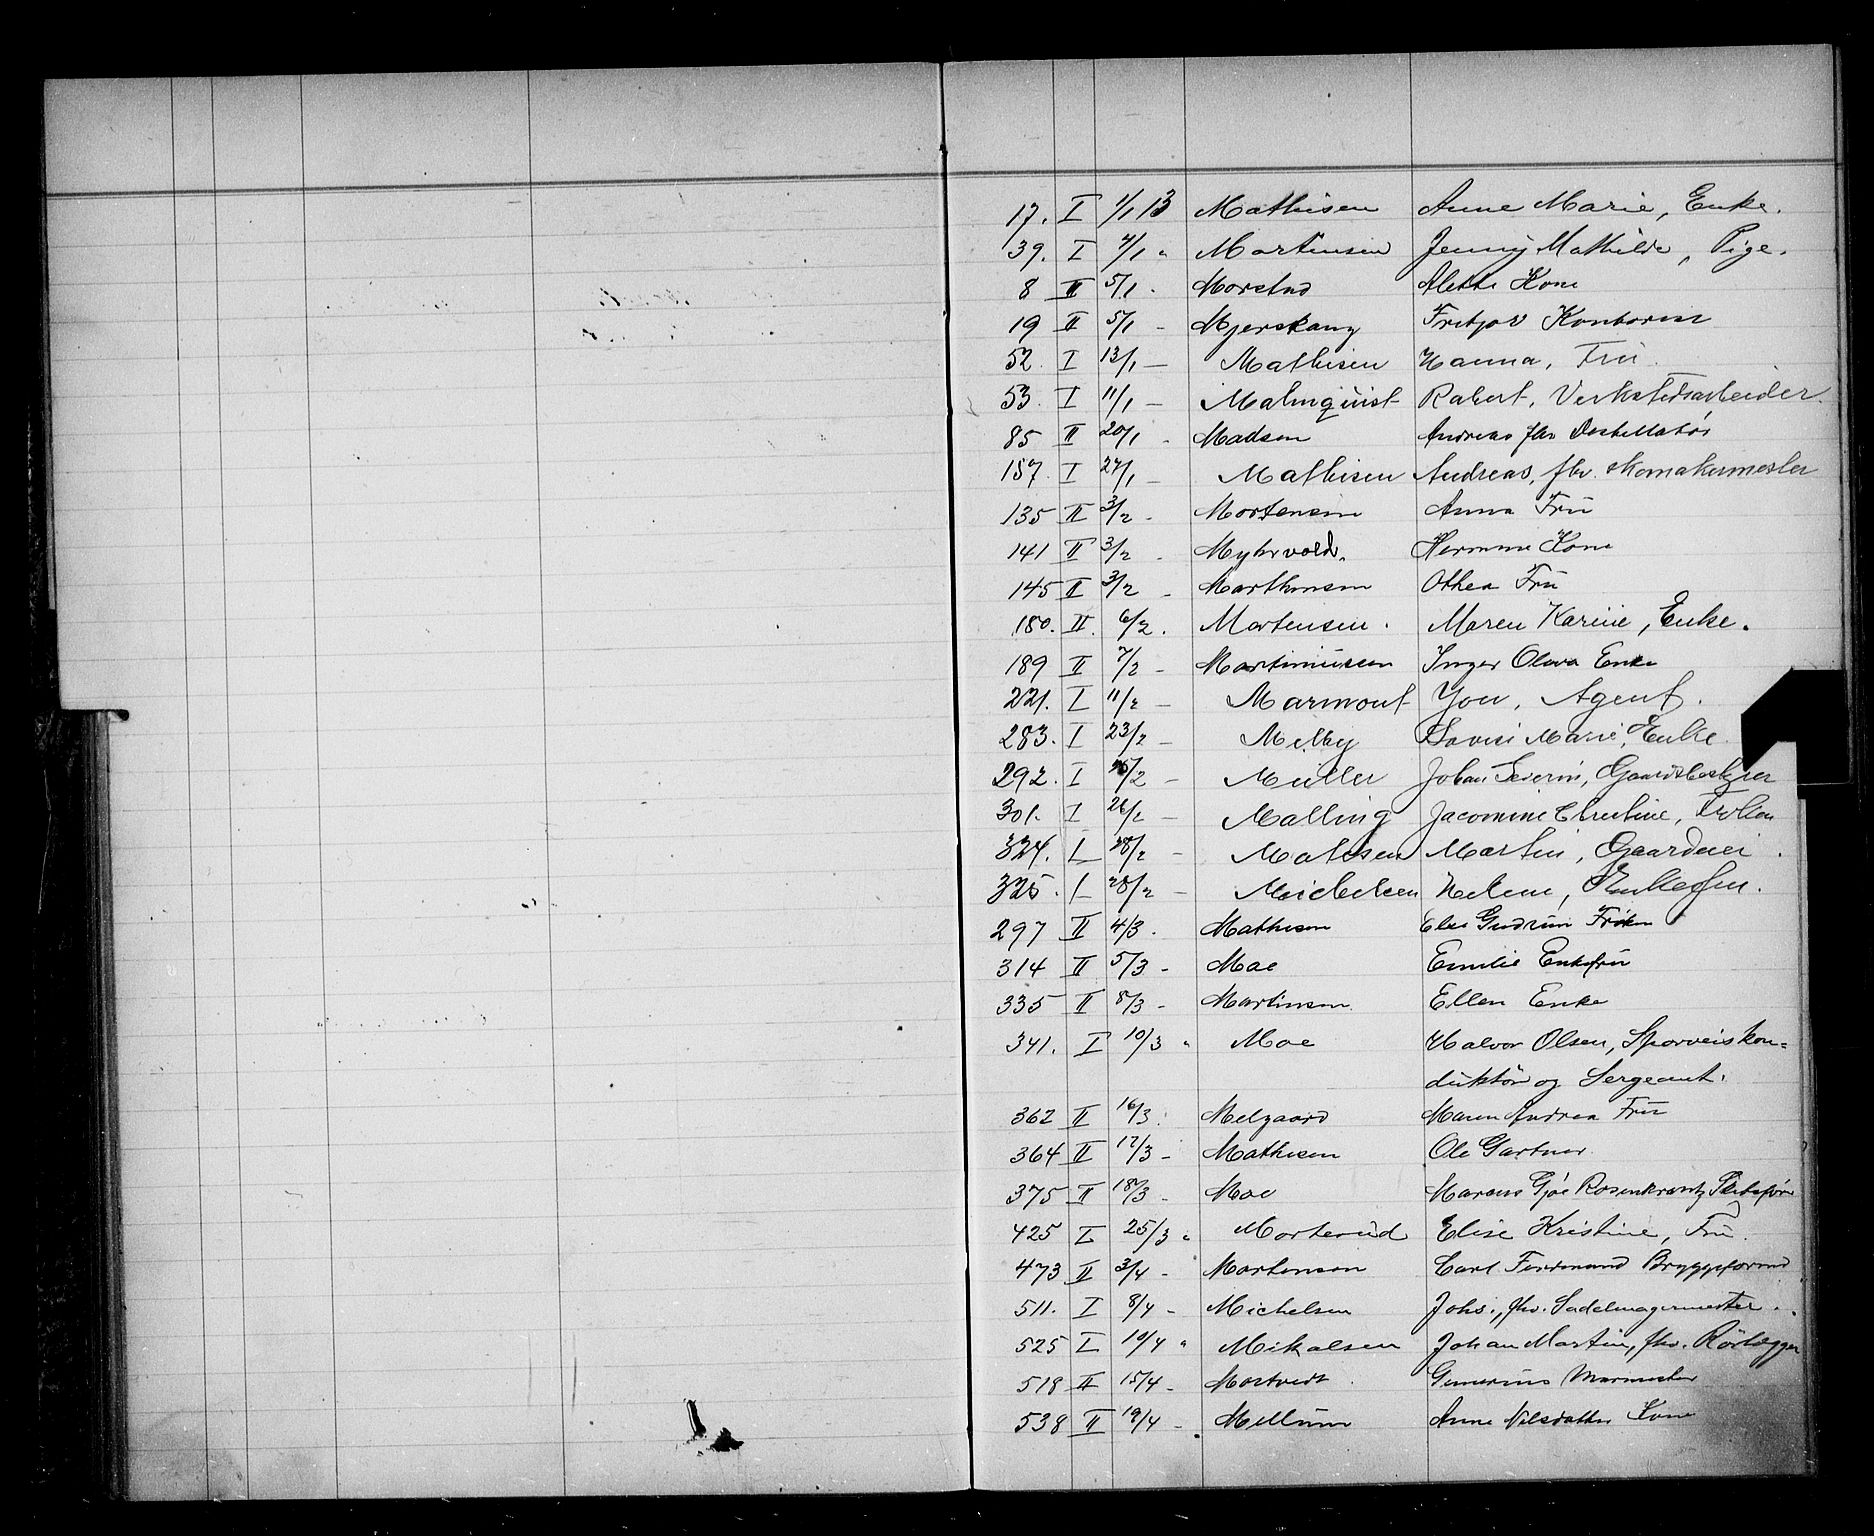 17. I 1/1 13 Mathisen Anne Marie, Enke.
39. I 4/1 " Martinsen Jenny Mathilde, Pige.
8 II 5/1 - Morstad Alette Kone
19 II 5/1 - Mjerskaug Fritjov Kontorist
52. I 13/1 - Mathisen Hanna, Fru.
53. I 11/1 - Malmquist Robert, Verkstedsarbeider.
85 II 20/1 - Madsen Andreas fhv Destillatør
157. I 27/1 - Mathisen Andreas, fhv. skomakermester
135 II 3/2 - Mortensen Anna Fru
141 II 3/2 - Myhrvold Hermine Kone
145 II 3/2 - Marthinsen Othea Fru
180. II. 6/2. Mortensen. Maren Karine, Enke.
189 II 7/2 - Martiniussen Inger Olava Enke
221. I 11/2 - Marmont You, Agent.
283. I 23/2 - Melby Lovise Marie, Enke.
292. I 25/2 - Müller Johan Severin, Gaardsbestyrer
301. I 26/2 - Malling Jacomine Christine, Frøken
324. I 28/2 - Matisen Martin, Gaardeier.
325. I 28/2 - Michelsen Helene, Enkefru.
297 II 4/3. Mathisen Else Gudrun Frøken
314 II 5/3 - Moe Emilie Enkefru
335 II 8/3 - Martinsen Ellen Enke
341. I 10/3 " Moe Halvor Olsen, Sporveiskon=
duktør og Sergeant.
362 II 16/3. Melgaard Maren Andrea Fru
364 II 17/3 - Mathisen Ole Gartner
375 II 18/3 - Moe Marcus Gjøe Rosenkrantz Skibsfører
425 I 25/3 " Morterud Elise Kristine, Fru.
473 II 3/4 - Mortensen Carl Ferdinand Bryggeformd
511. I 8/4 - Michelsen Johs., fhv. Sadelmagermester.
525 I 10/4 " Mikalsen Johan Martin, fhv. Rörlægger
518 II 15/4 - Mortvedt Gunerius Murmester
538 II 19/4 - Mellum Anne Nilsdatter Kone